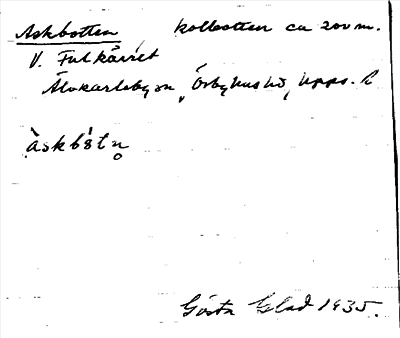 Askbotten, kolbotten ca 200 m.
V. Fulkärret
Älvkarleby sn, Örbyhus hd, Upps. l
àskbót
Gösta Glad 1935.